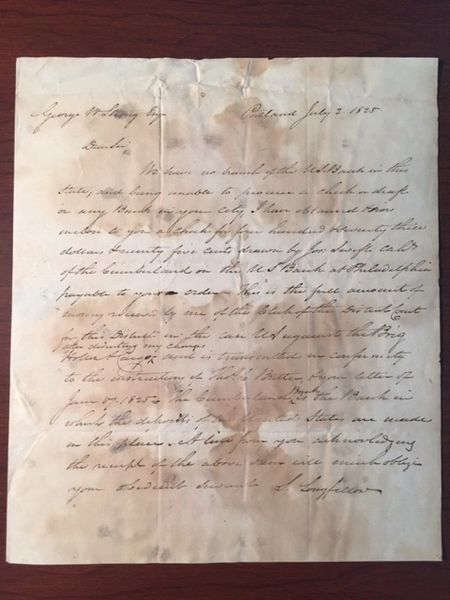 George W Strong Esq Portland July 2. 1825
Dear Sir
We have no branch of the U.S. Bank in this
State, and being unable to procure a check or draft
on any Bank in your City, I have obtained & now
inclose to you a check for four hundred & seventy three
dollars & ninety five cents drawn by Jos. Swift, cash.
of the Cumberland on the U S Bank at Philadelphia
payable to your order. This is the full amount of
money received by me of the Clerk of the District Court
for this District in the case U S against the Brig
after deducting my charges
& cargo, and is transmitted in conformity
to the instructions of & your letter of
Jany 1825. The Cumberland Bank is the Bank in
which the deposits of the United States are made
in this place. A line from you acknowledging
the receipt of the above will much oblige
your obedient servant S. Longfellow